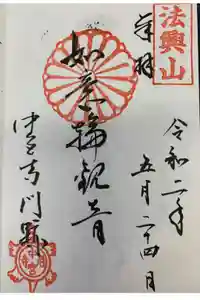 法興山
奉拝
令和二年
五月二十四日
如意輪観音
中宮寺門跡